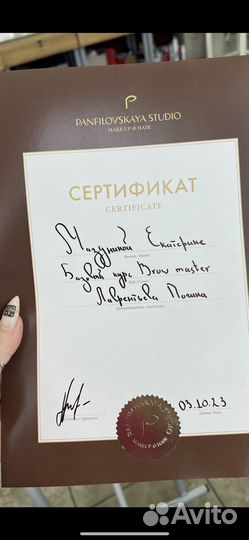 PANFILOVSKAYA STUDIO
MAKE UP & HAIR
СЕРТИФИКАТ
CERTIFICATE
Мазуниной Екатерине
Базовый курс Brow master
Лаврентьева Полина
03.10.23
PANFILOVSKAYA STUDIO
MAKE UP & HAIR
Avito